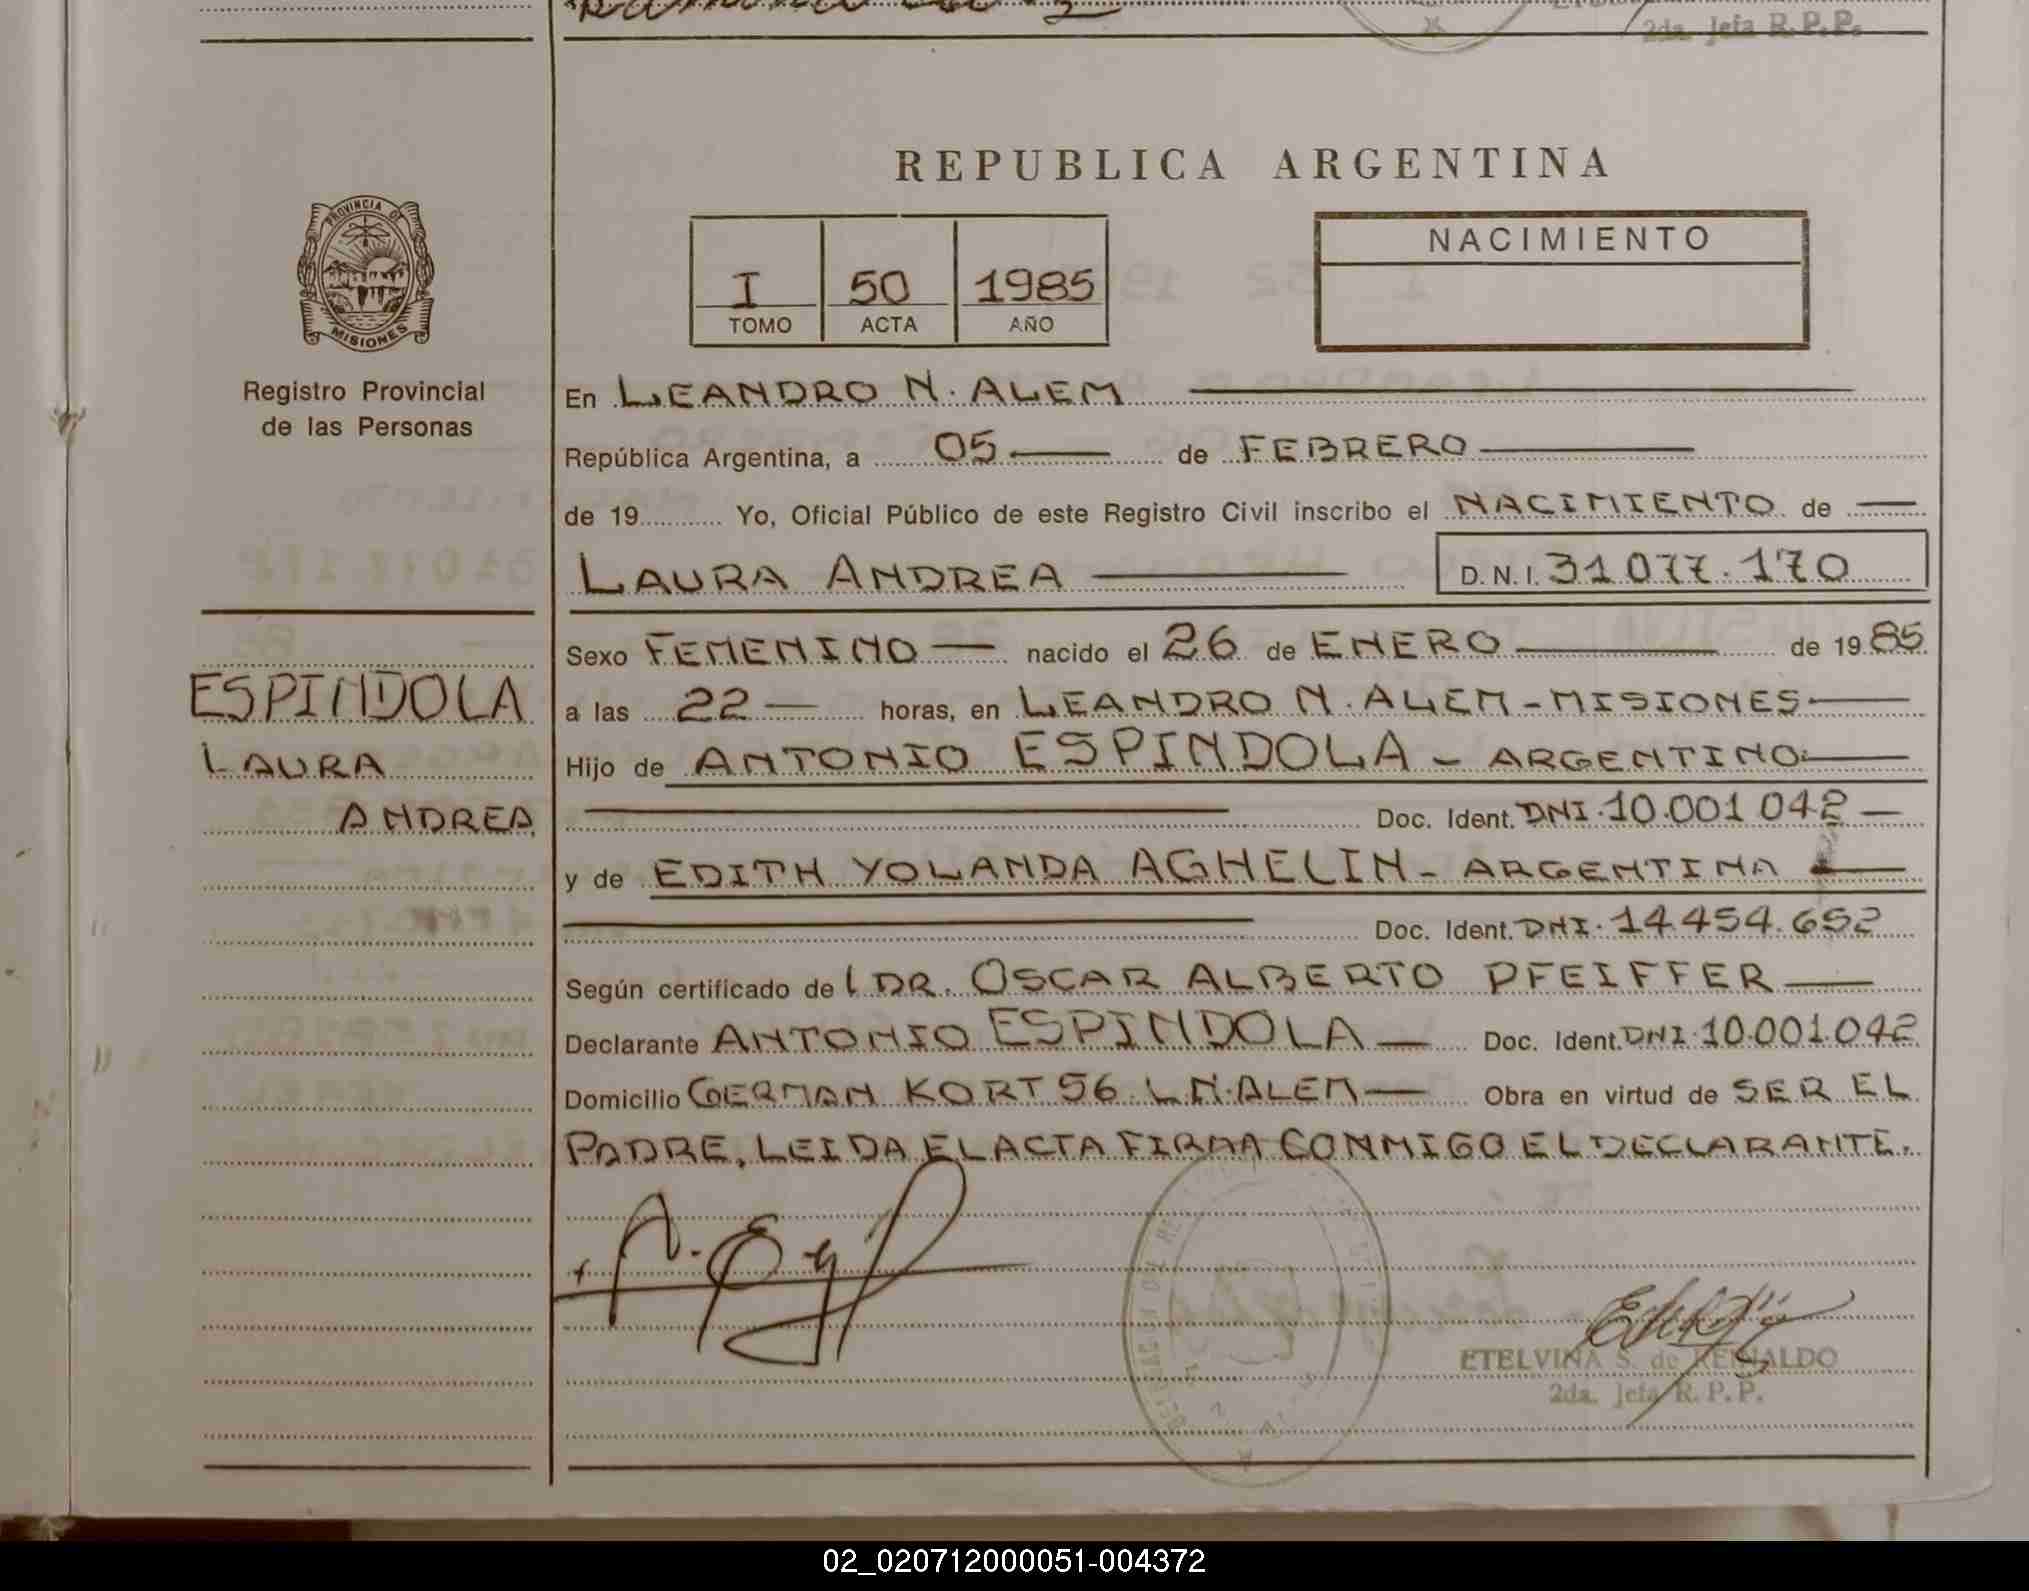 2da. Jefa R.P.P.
REPUBLICA ARGENTINA
PROVINCIA DE
MISIONES
Registro Provincial
de las Personas
I 50 1985
TOMO ACTA AÑO
NACIMIENTO
En LEANDRO N. ALEM
República Argentina, a 05 de FEBRERO
de 19 Yo, Oficial Público de este Registro Civil inscribo el NACIMIENTO de
LAURA ANDREA D.N.I. 31 077.170
Sexo FEMENINO nacido el 26 de ENERO de 19 85
ESPINDOLA
LAURA
ANDREA
a las 22 horas, en LEANDRO N. ALEM - MISIONES
Hijo de ANTONIO ESPINDOLA - ARGENTINO
Doc. Ident. DNI. 10.001 042
y de EDITH YOLANDA AGHELIN - ARGENTINA
Doc. Ident. DNI. 14.454.652
Según certificado de l DR. OSCAR ALBERTO PFEIFFER
Declarante ANTONIO ESPINDOLA Doc. Ident. DNI. 10.001.042
Domicilio GERMAN KORT 56 L.N.ALEM Obra en virtud de SER EL
PADRE, LEIDA EL ACTA FIRMA CONMIGO EL DECLARANTE.
ETELVINA S. de REINALDO
2da. Jefa R.P.P.
02_020712000051-004372